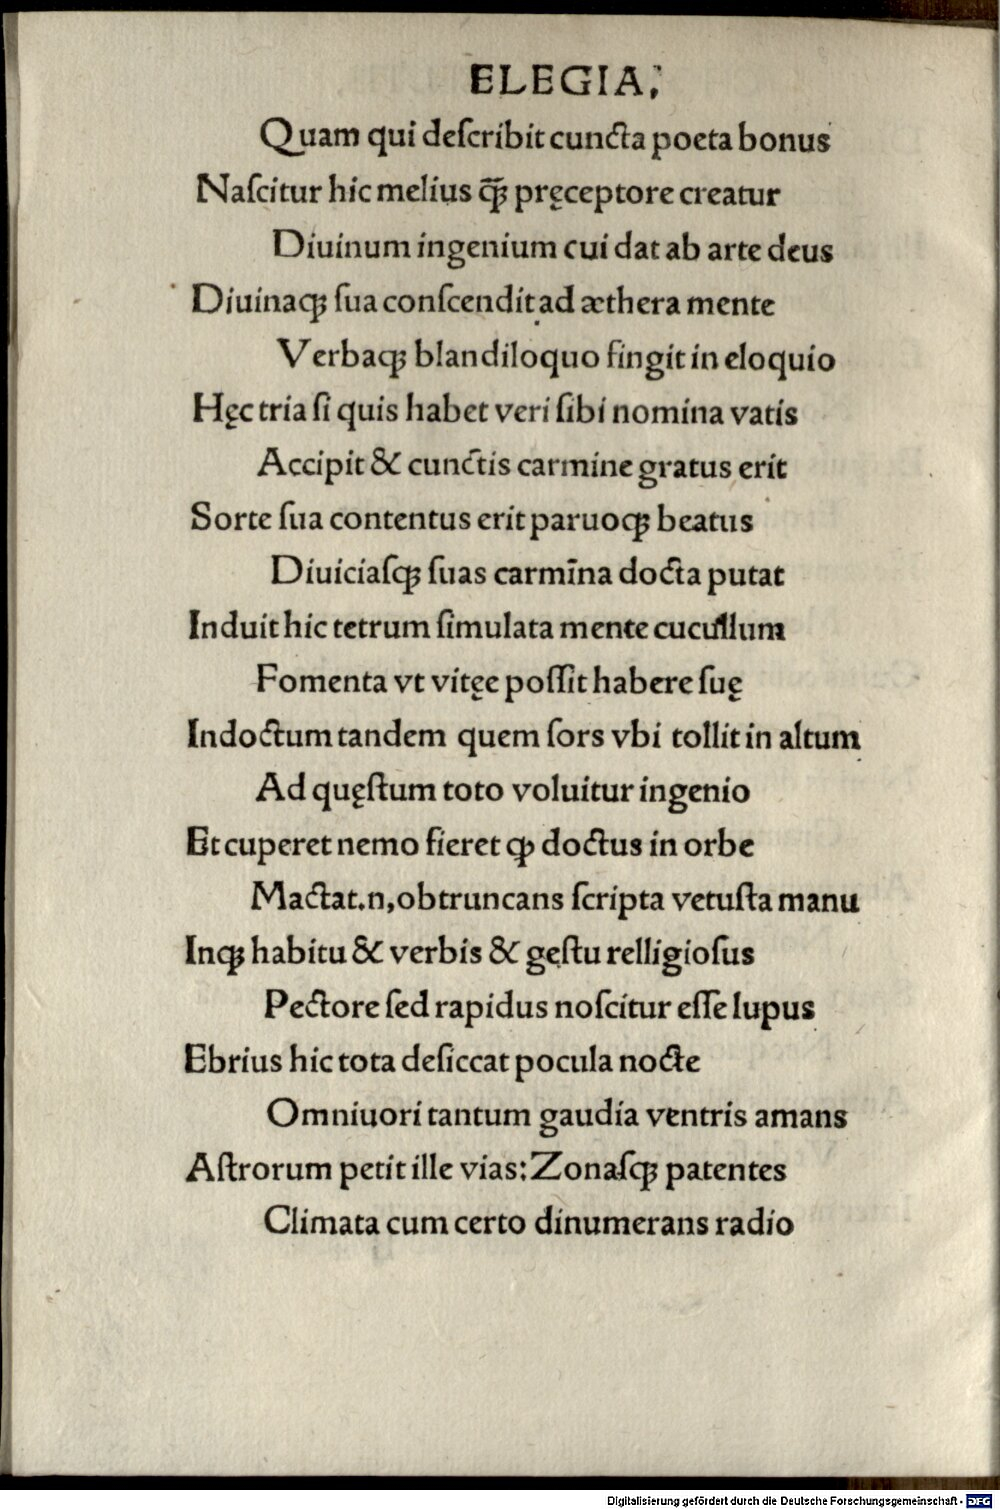 ELEGIA;
Quam qui deſcribit cuncta poeta bonus
Naſcitur hic melius q̄ꝫ pręceptore creatur
Diuinum ingenium cui dat ab arte deus
Diuinaqꝫ ſua conſcendit ad æthera mente
Verbaqꝫ blandiloquo fingit in eloquio
Hęc tria ſi quis habet veri ſibi nomina vatis
Accipit & cunctis carmine gratus erit
Sorte ſua contentus erit paruoqꝫ beatus
Diuiciaſqꝫ ſuas carmīna docta putat
Induit hic tetrum ſimulata mente cucullum
Fomenta vt vitęe poſſit habere ſuę
Indoctum tandem quem ſors vbi tollit in altum
Ad quęſtum toto voluitur ingenio
Et cuperet nemo fieret ꝙ doctus in orbe
Mactat.n,obtruncans ſcripta vetuſta manu
Inqꝫ habitu & verbis & geſtu relligioſus
Pectore ſed rapidus noſcitur eſſe lupus
Ebrius hic tota deſiccat pocula nocte
Omniuori tantum gaudia ventris amans
Aſtrorum petit ille vias: Zonaſqꝫ patentes
Climata cum certo dinumerans radio
Digitalisierung gefördert durch die Deutsche Forschungsgemeinschaft - DFG